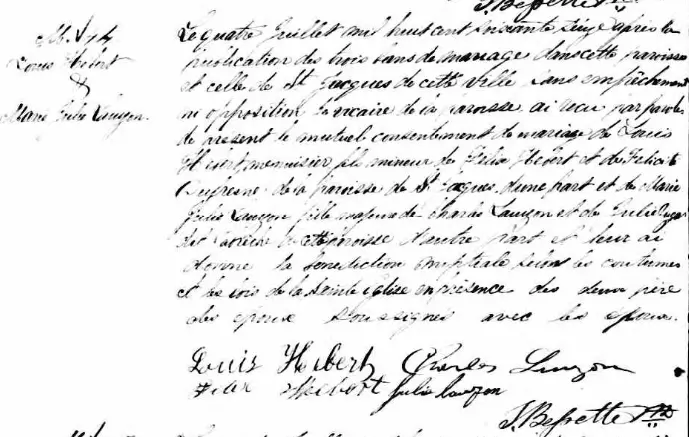 J. Bessette Ptre
M. 
Louis Hebert
&
Marie Julie Lauzon.
Le quatre Juillet mil huit cent soixante seize après la
publication des trois bans de mariage dans cette paroisse
et celle de St Jacques de cette ville sans empêchement
ni opposition le vicaire de la paroisse ai recu par paroles
de present le mutuel consentement de mariage de Louis
Hebert menuisier fils mineur de Felix Hebert et de Felicité
Dufresne de la paroisse de St Jacques d'une part et de Marie
Julie Lauzon fille majeure de Charles Lauzon et de Julie
de cette paroisse d'autre part et leur ai
donné la benediction nuptiale selon les coutumes
et les lois de la Sainte Eglise en présence des deux père
des epoux soussignés avec les epoux.
Louis Hebert Charles Lauzon
Hebert Julie Lauzon
J. Bessette Ptre